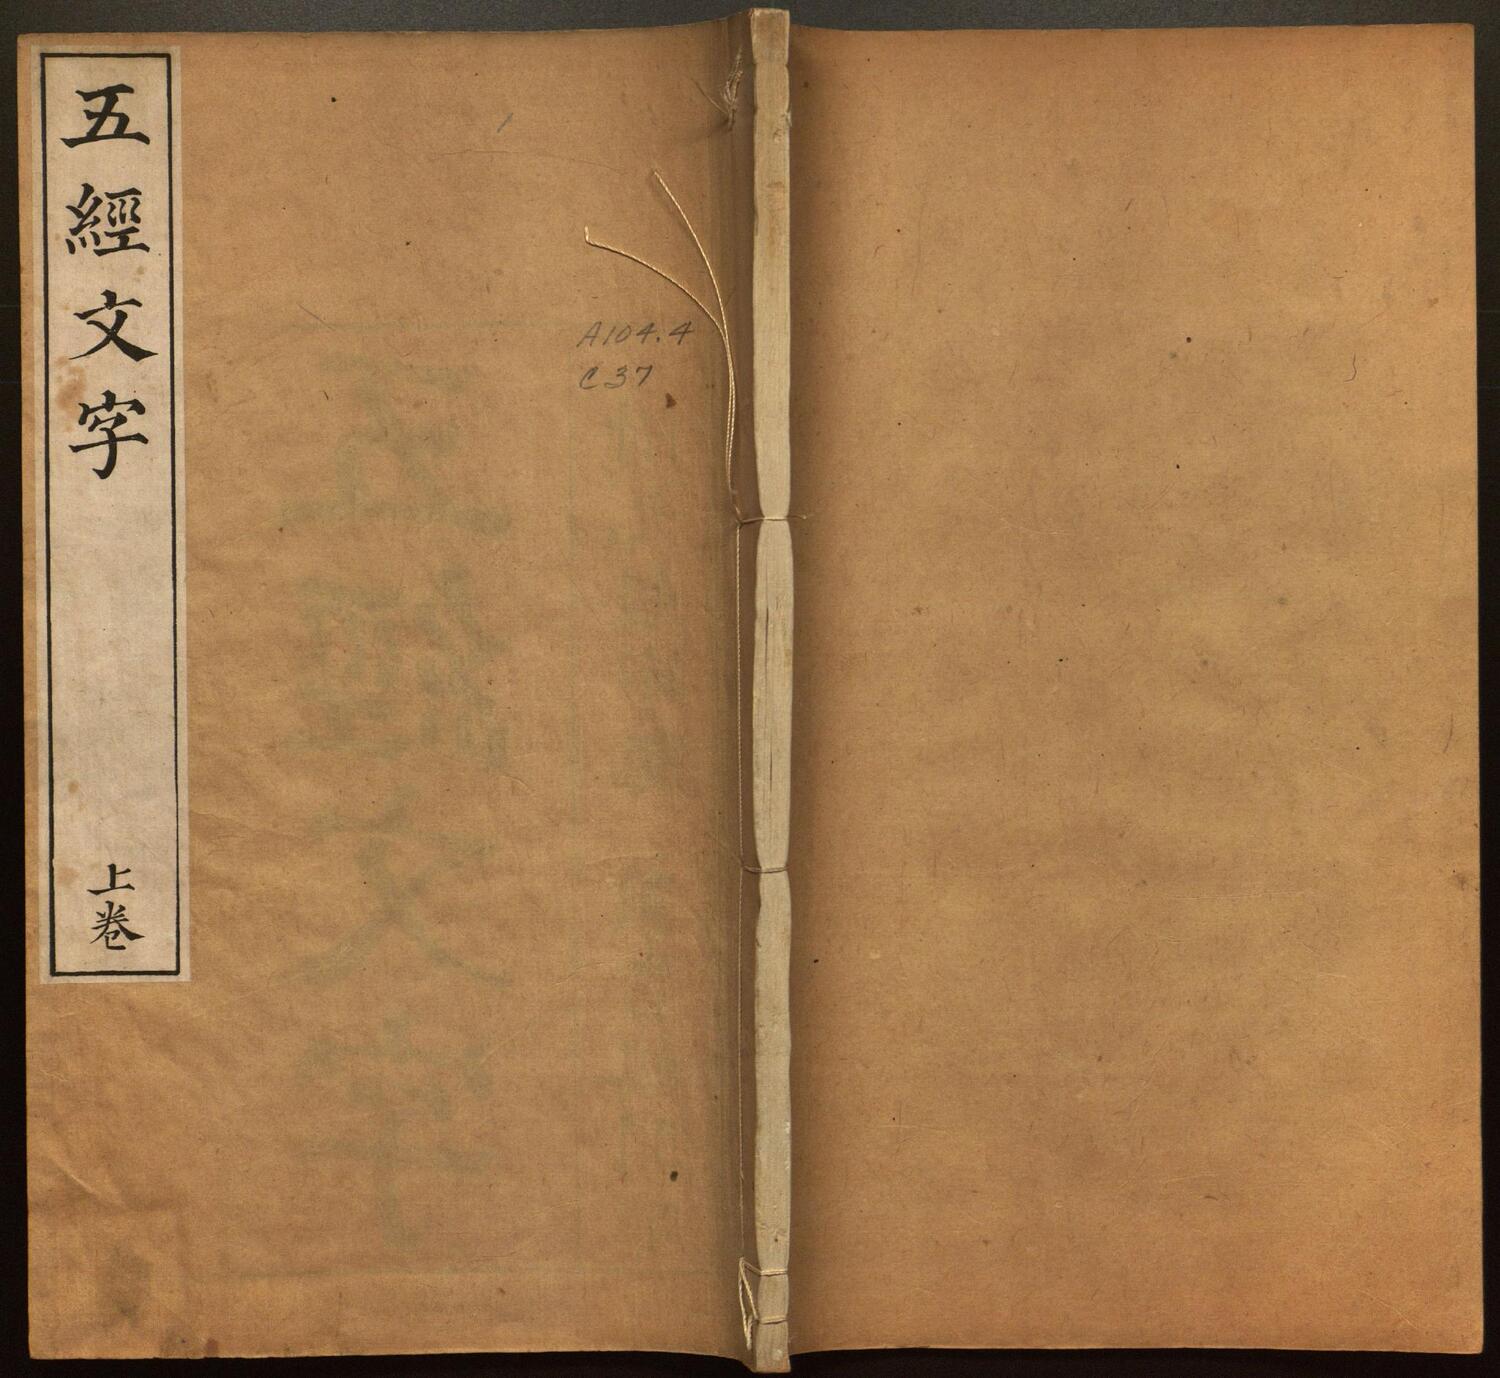 五經文字
上卷
A104.4
C37